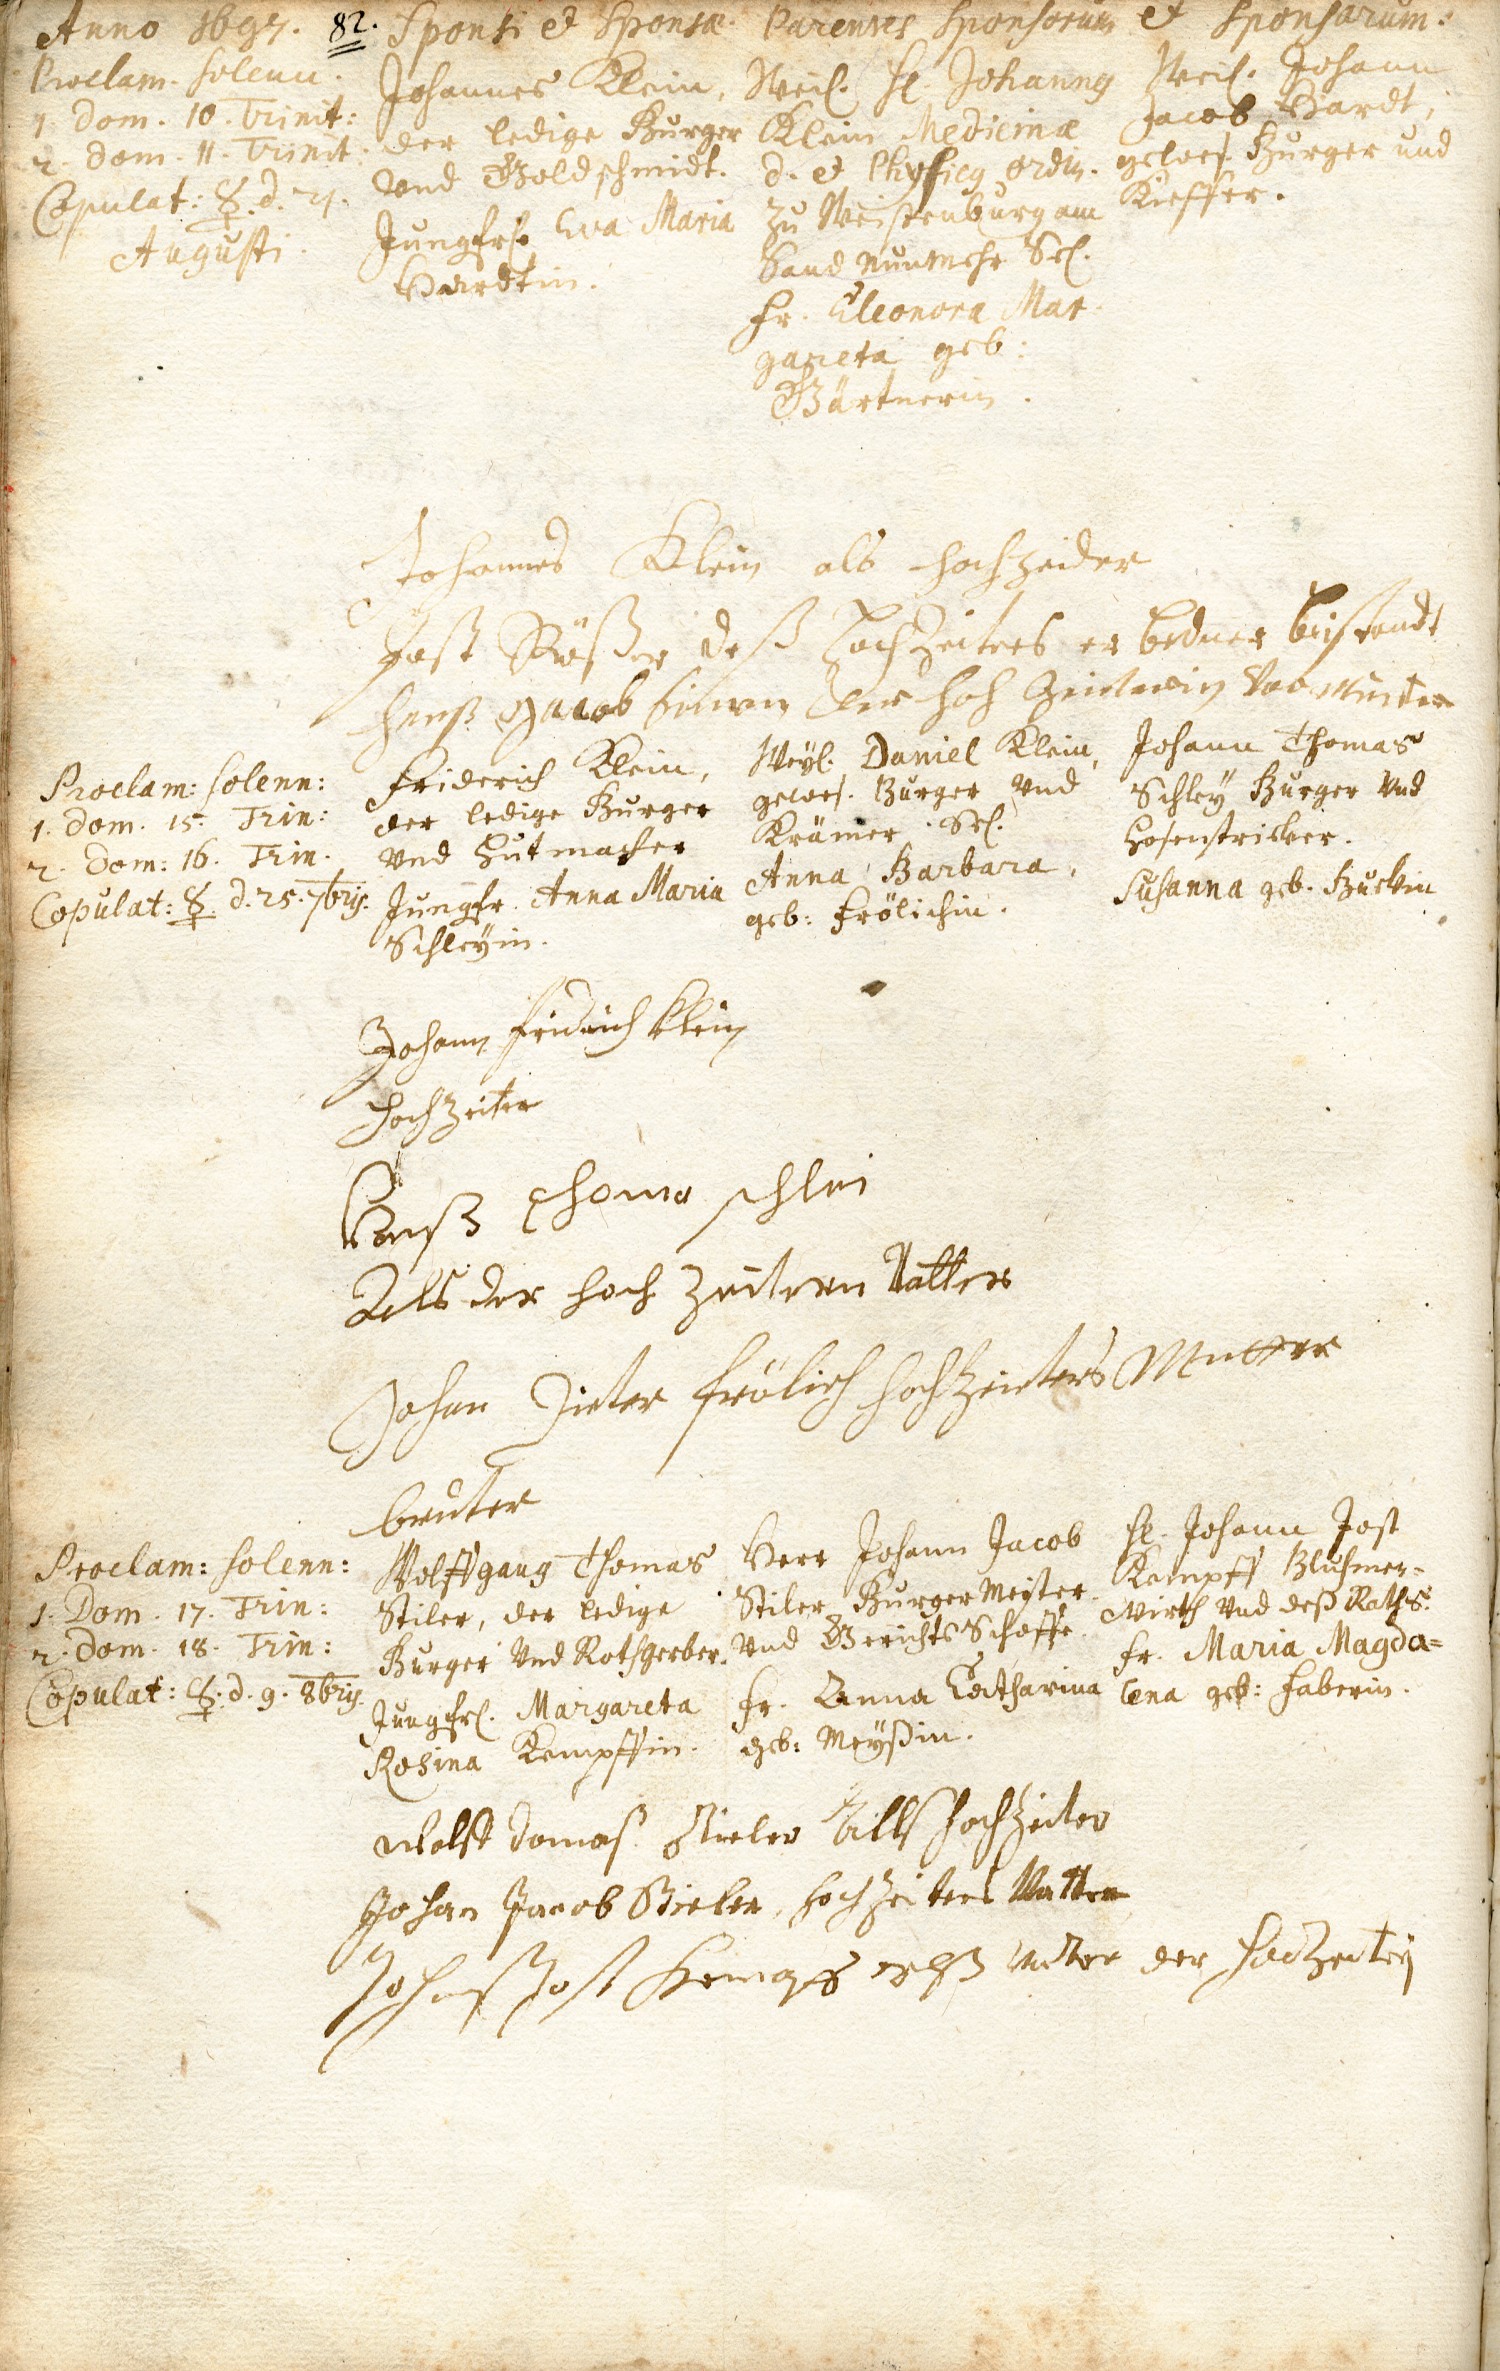 Anno 1695. 82. Sponsi et Sponsæ. Parentes Sponsorum et Sponsarum.
Proclam. solenn.
1. Dom. 10. Trinit:
2. Dom. 11. Trinit:
Copulat: ♀. d. 21.
Augusti.
Johannes Klein,
der ledige Burger
Vnd Goldschmidt.
Jungfr. Eva Maria
Hardtin.
Weil. H. Johannes
Klein Medicinæ
D. et Physicus ordin.
zu Weissenburg am
Sand nunmehr Sel.
Fr. Eleonora Mar-
gareta geb:
Gärtnerin.
Weil. Johann
Jacob Hardt,
gewes. Burger und
Kieffer.
Johannes Klein als hochzeider
Jost deß Hochzeiters er bedner beistandt
Hanß Jacob der hoch Zeiterin Vor Munder
Proclam: solenn:
1. Dom. 15. Trin:
2. Dom: 16. Trin.
Copulat: ♀. d. 25. 7bris.
Friderich Klein,
der ledige Burger
Vnd Hutmacher
Jungfr. Anna Maria
Schleÿin.
Weÿl. Daniel Klein,
gewes. Burger Vnd
Krämer Sel.
Anna Barbara,
geb: Frölichin.
Johann Thomas
Schleÿ Burger Vnd
Hosenstricker.
Susanna geb. Burckin
Johann Fridrich Klein
Hochzeiter
Hanß Thoma schlei
Als der hoch Zeitern Vatter
Johan Dieter Frölich Hochzeiters Mutter
bruter
Proclam: solenn:
1. Dom. 17. Trin:
2. Dom. 18. Trin:
Copulat: ♀. d. 9. 8bris.
Wolffgang Thomas
Stiler, der ledige
Burger Vnd Rothgerber.
Jungfr. Margareta
Rosina Kempffin.
Herr Johann Jacob
Stiler BurgerMeister
Vnd GerichtsSchöffe.
Fr. Anna Catharina
geb: Meÿßin.
H. Johann Jost
Kempff Bluhmen-
Wirth Vnd deß Raths.
Fr. Maria Magda=
lena geb: Faberin.
Wolff Domaß Stieler Allß Hochzeiter
Johan Jacob Stieler, Hochzeiters Vatter
Johanß Jost Kempff alß Vater der Hoczeiterin